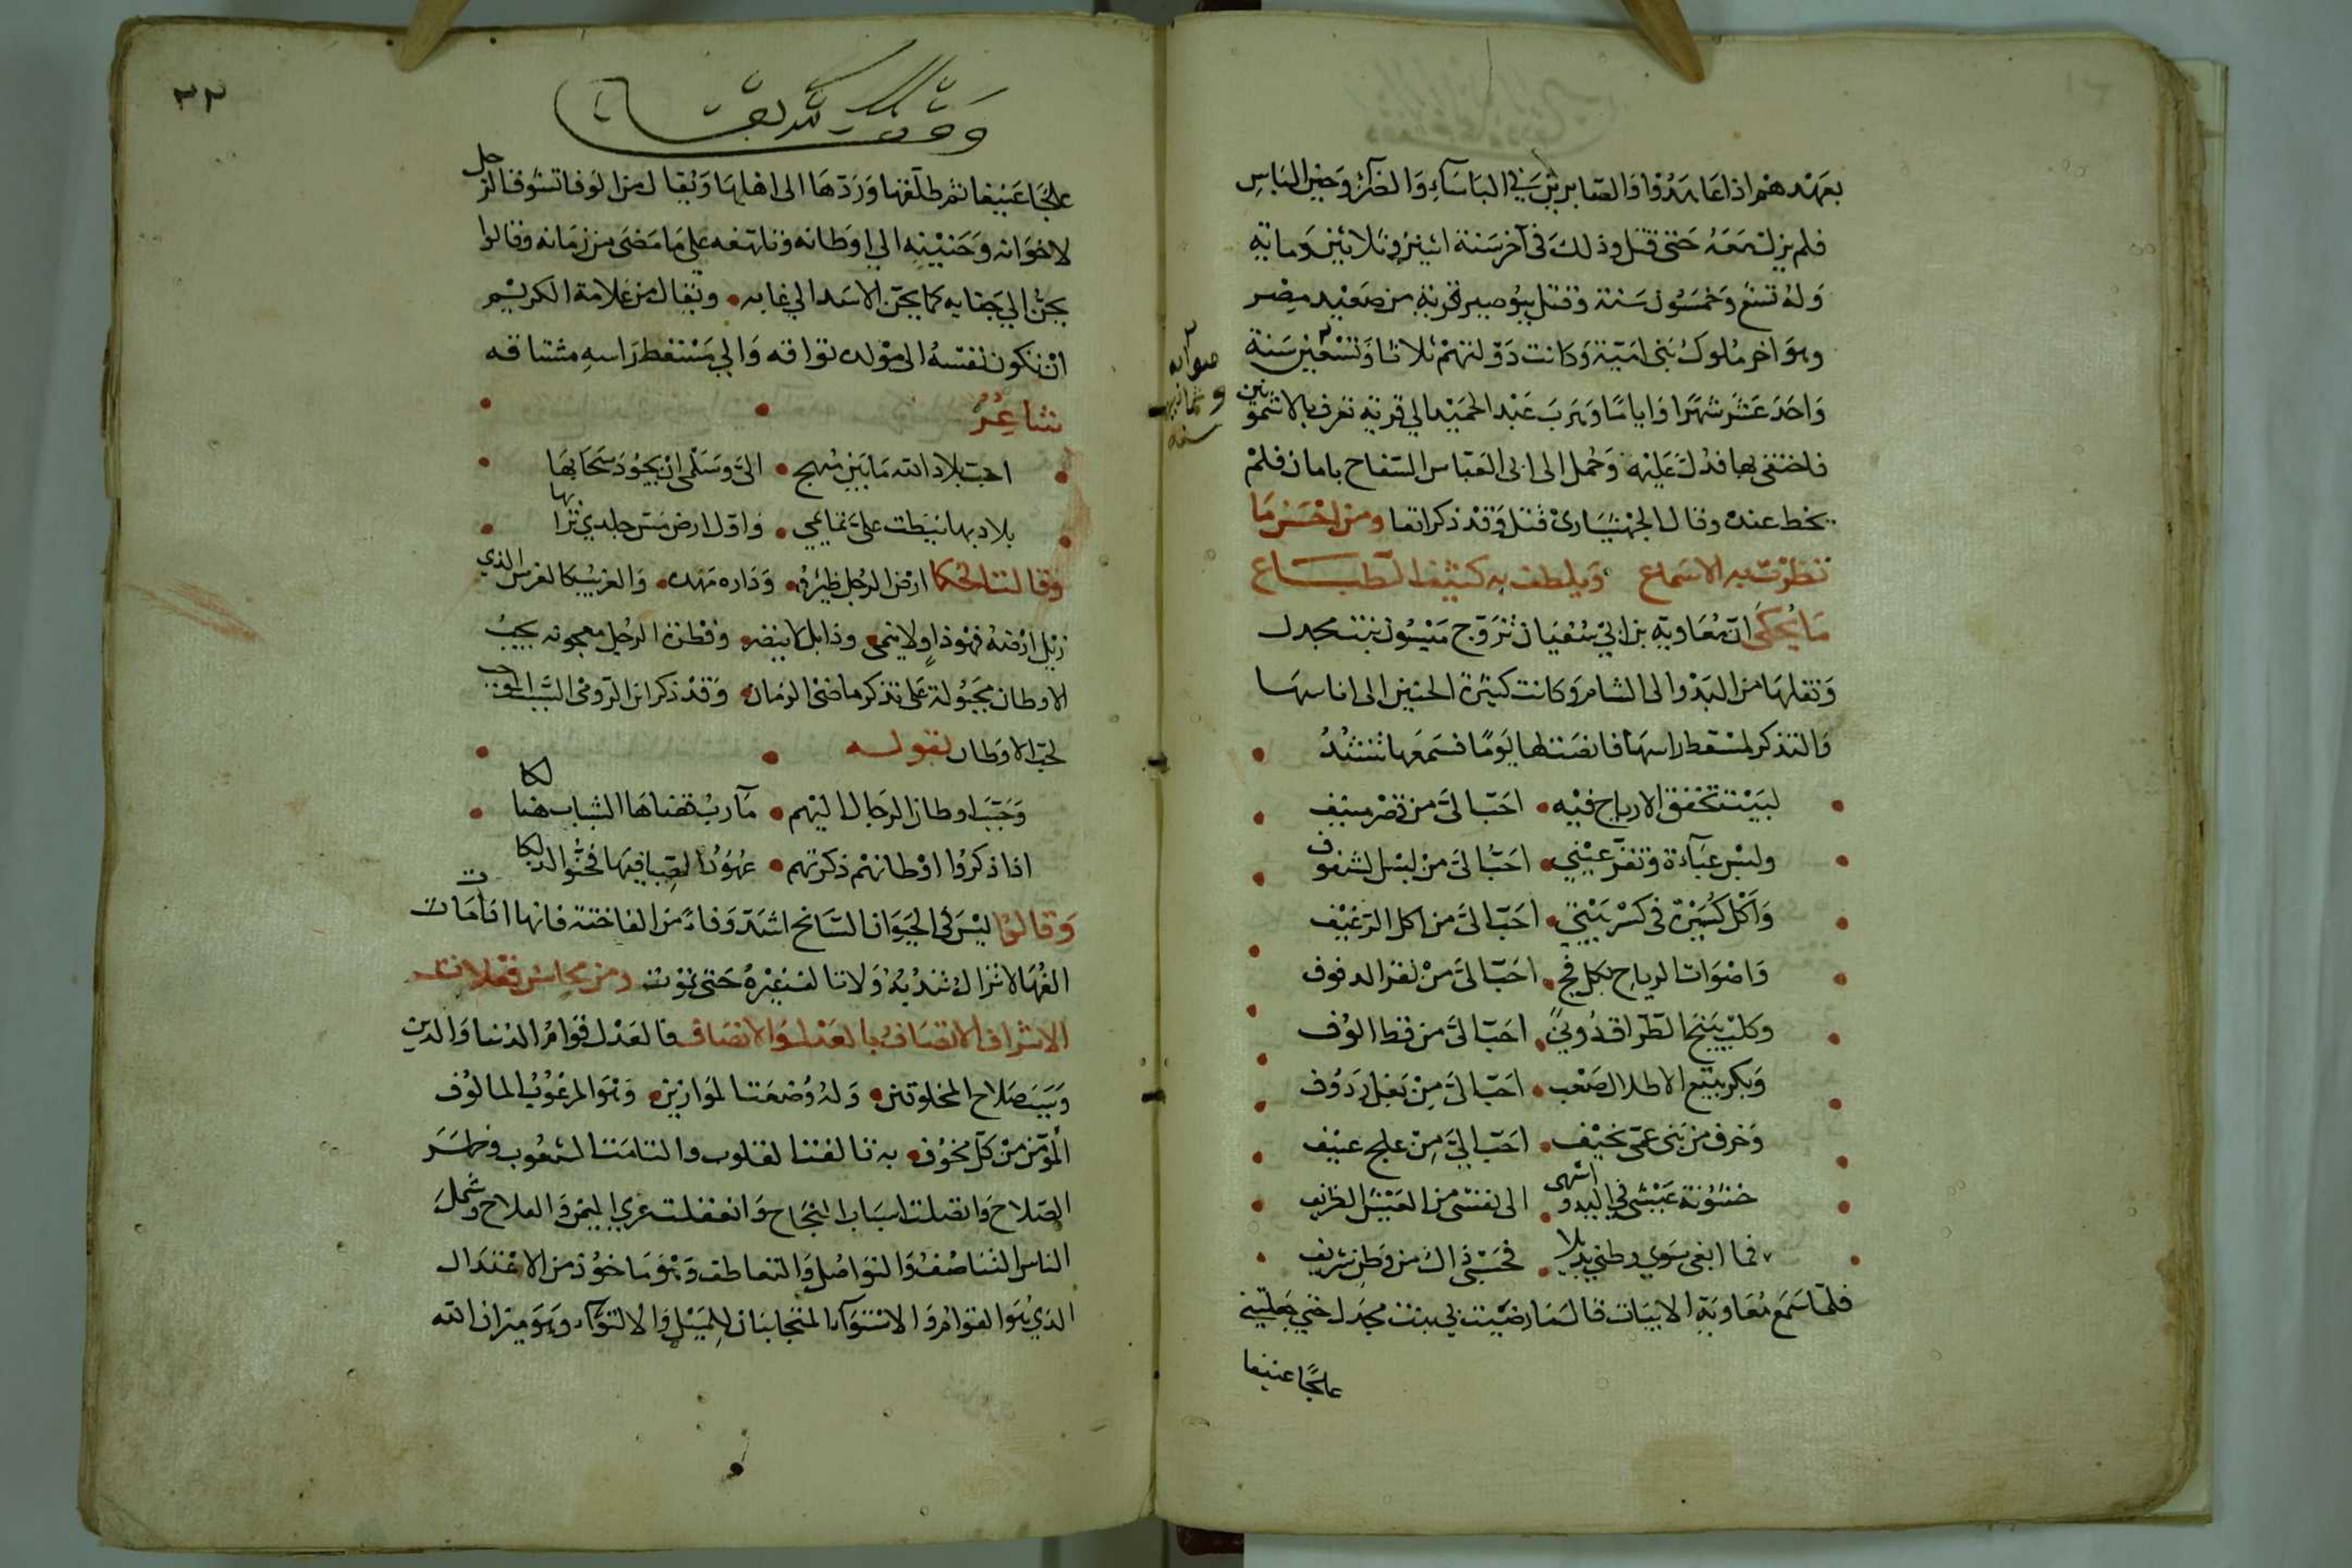 بعهدهم اذا عاهدوا والصابرين في البأساء والضراء وحين الباس
فلم يزل معه حتى قتل وذلك في آخر سنة اثنين وثلاثين وماتة
وله تسع وخمسون سنة وقتل ببوصير قرية من صعيد مصر
وهو اخر ملوك بني امية وكانت دولتهم ثلاثا وتسعين سنة
صوابه
وثمانين
سنة
واحد عشر شهرا واياما وهرب عبد الحميد الي قرية تعرف بالاشمونين
فاختفى بها فدل عليه وحمل الى ابى العباس السفاح بامان فلم
يخط عنده وقال الجهشيارى قتل وقد ذكر انفا ومن احسن ما
تطرزت به الاسماع ويلطف به كثيف الطباع
ما يحكى ان معاوية بن ابي سفيان تزوج ميسون بنت بجدل
ونقلها من البدو الى الشام وكانت كثيرة الحنين الى اناسها
والتذكر لمسقط راسها فانصت لها يوما فسمعها تنشد
لبيت تخفق الارياح فيه احب الى من قصر منيف
ولبس عباءة وتقر عيني احب الى من لبس الشفوف
واكل كسيرة في كسر بيتي احب الى من اكل الرغيف
واصوات الرياح بكل فج احب الى من نقر الدفوف
وكلب ينبح الطراق دوني احب الى من قط الوف
وبكر يتبع الاظلال صعب احب الى من بغل ردوف
وخرق من بني عمى نحيف احب الي من علج عنيف
خشونة عيشى في البدو اشهى الى نفسى من العيش الظريف
فما ابغى سوي وطني بديلا فحسبى ذاك من وطن شريف
فلما سمع معاوية الابيات قال ما رضيت لي بنت بجدل حتى جعلتيني
علجا عنيفا
٣٣
علجا عنيفا ثم طلقها وردها الى اهلها ويقال من الوفا تشوق الرجل
لاخوانه وحنينه الي اوطانه وتلهفه على ما مضى من زمانه وقالوا
يحن الي جنابه كما يحن الاسد الي غابه ويقال من علامة الكريم
ان تكون نفسه الى مولده تواقه والي مسقط راسه مشتاقه
شاعر
احب بلاد الله ما بين منهج الى وسلمى ان يجود سحابها
بلاد بها نيطت على تمايمي واول ارض مس جلدي ترابها
وقالت الحكما ارض الرجل ظيره وداره مهده والغريب كالغرس الذي
زيل ارضه فهو ذاو لا ينمى وذابل لا ينضر وفطرة الرجل معجونه بحب
الاوطان مجبولة على تذكر ما مضى الزمان وقد ذكر ابن الرومى السبب الموجب
لحب الاوطان بقوله
وحبب اوطان الرجال اليهم مآرب قضاها الشباب هنالكا
اذا ذكروا اوطانهم ذكرتهم عهود الصبا فيها فحنوا لذلكا
وقالوا ليس في الحيوان السانح اشد وفاء من الفاختة فانها اذا مات
الفها لا تزال تندبه ولا تالف غيره حتى تموت ومن محاسن فعلات
الاشراف الاتصاف بالعدل والانصاف فالعدل قوام الدنيا والدين
وسبب صلاح المخلوقين وله وضعت الموازين وهو المرغوب المالوف
المؤمن من كل مخوف به تالفت القلوب والتامت الشعوب وظهر
الصلاح واتصلت اسباب النجاح وانعقلت عري اليمن والفلاح وشمل
الناس التناصف والتواصل والتعاطف وهو ماخوذ من الاعتدال
الذي هو القوام والاستوآء المتجانبان للميل والالتوآء وهو ميزان الله